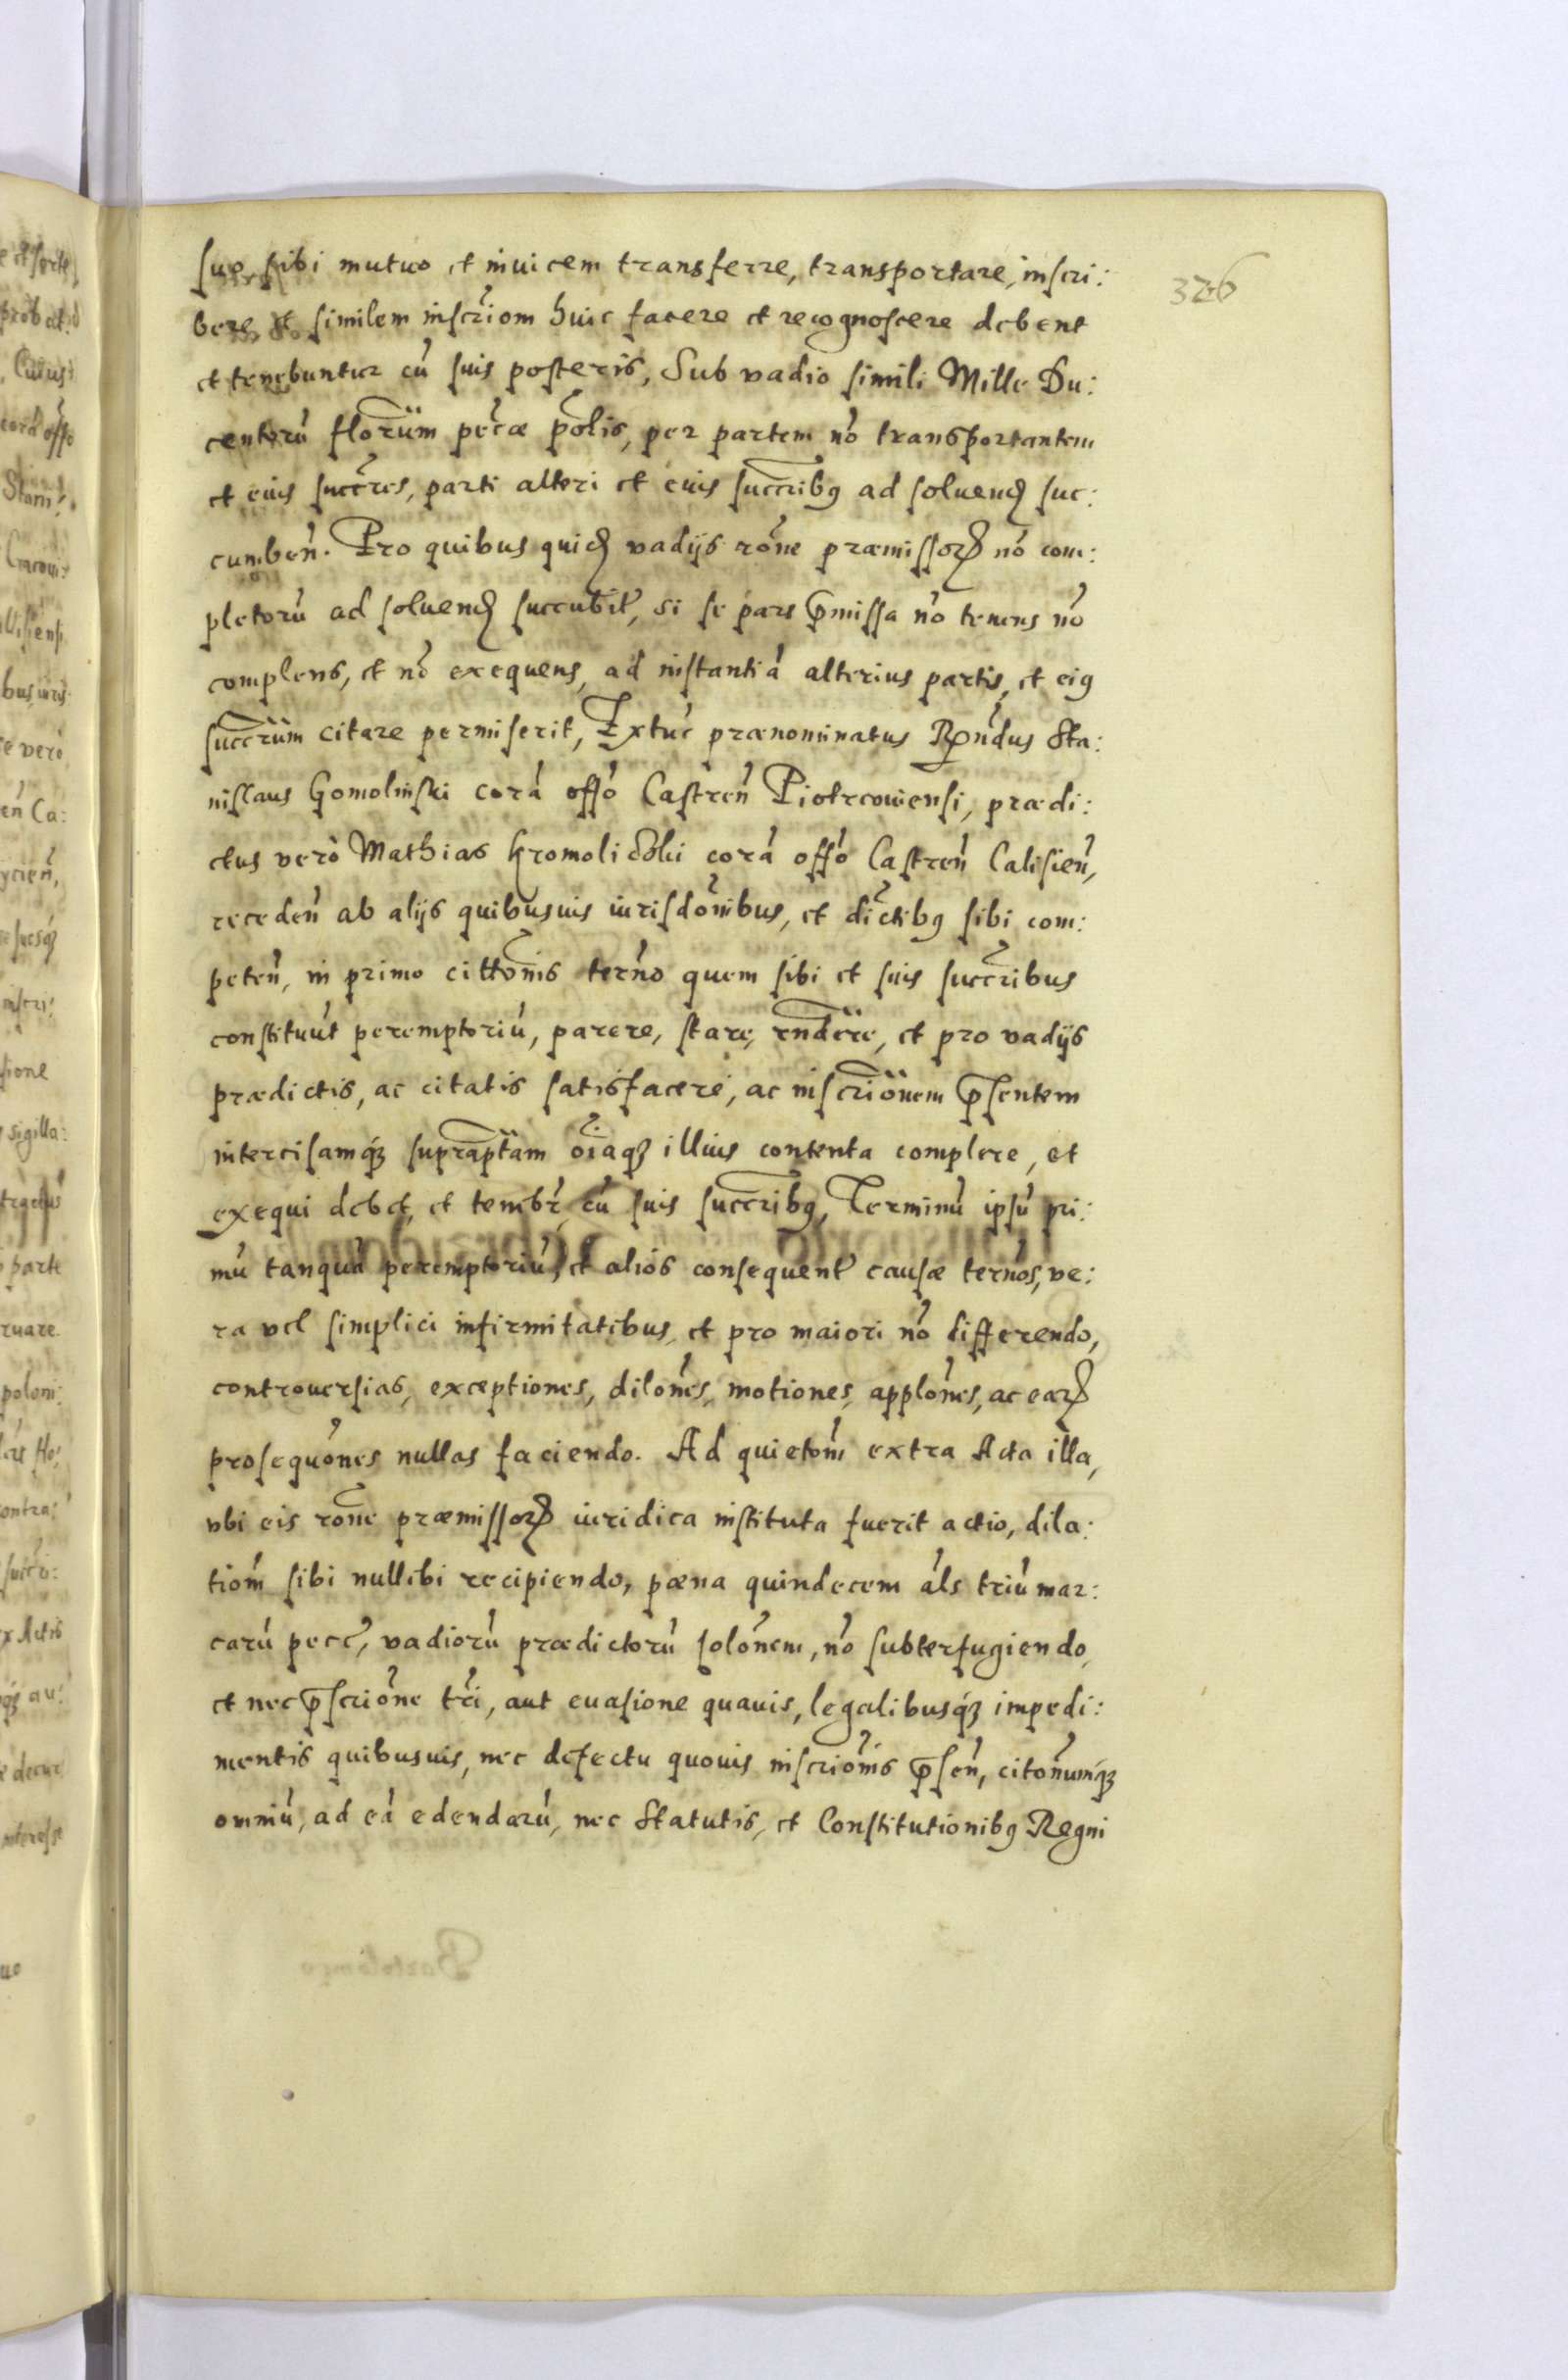 326
suo sibi mutuo et inuicem transferre, transportare, inscri:
bere et similem inscr̃iom huic facere et recognoscere debent
et tenebuntur cũ suis posteris, Sub vadio simili Mille Du:
centorũ flor̃um pecc̃æ põlis, per partem nõ transportantem
et eius succr̃es, parti alteri et eius succr̃ibꝰ ad soluenđ suc:
cumbeñ. Pro quibus quiđ vadijs rõne præmissorꝝ nõ com:
pletorũ ad soluenđ succubit̃, si se pars p̃missa nõ tenens nõ
complens, et nõ exequens, ad instantiã alterius partis, et eiꝰ
succr̃um citare permiserit, Extũc prænominatus Rñdus Sta:
nislaus Gomolinski corã offõ Castreñ Piotrcouiensi, prædi:
ctus verò Mathias Gromoliczki corã offõ Castreñ Calisieñ,
recedeñ ab alijs quibusuis iurisdõnibus, et dic̃tibꝰ sibi com:
peteñ, in primo cittõnis ter̃no quem sibi et suis succr̃ibus
constituũt peremptoriũ, parere, stare, rñdere, et pro vadijs
prædictis, ac citatis satisfacere, ac inscriõnem p̃sentem
intercisamqꝫ suprap̃tam oĩaqꝫ illius contenta complere, et
exequi debet, et tenebr̃, cũ suis succr̃ibꝰ, Terminũ ipsũ pri:
mũ tanquã peremptoriũ, et alios consequent̃ causæ ter̃nos, ve:
ra vel simplici infirmitatibus, et pro maiori nõ differendo,
controuersias, exceptiones, dilõnes, motiones, applõnes, ac earꝝ
prosequõnes nullas faciendo. Ad quietom̃ extra Acta illa,
vbi eis rõne præmissorꝝ iuridica instituta fuerit actio, dila:
tiom̃ sibi nullibi recipiendo, pœna quindecem al̃s triũ mar:
carũ pecc̃, vadiorũ prædictorũ solõnem, nõ subterfugiendo,
et nec p̃scriõne tr̃i, aut euasione quauis, legalibusqꝫ impedi:
mentis quibusuis, nec defectu quouis inscriõnis p̃señ, citõnumqꝫ
omniũ, ad eã edendarũ, nec Statutis, et Constitutionibꝰ Regni